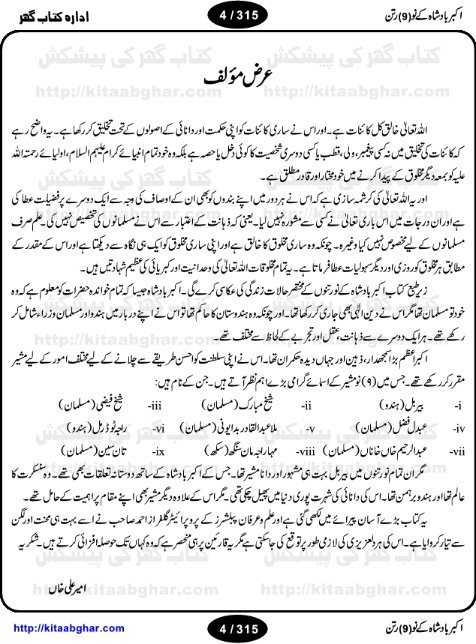 اکبر بادشاہ کے نو(9) رتن
4 / 315
ادارہ کتاب گھر
کتاب گھر کی پیشکش کتاب گھر کی پیشکش
http://kitaabghar.com http://kitaabghar.com
عرض مؤلف
اللہ تعالیٰ خالق کل کائنات ہے۔ اور اس نے ساری کائنات کو اپنی حکمت اور دانائی کے اصولوں کے تحت تخلیق کر رکھا ہے۔ یہ واضح رہے
کہ کائنات کی تخلیق میں نہ کسی پیغمبر، ولی، قطب یا کسی دوسری شخصیت کا کوئی دخل یا حصہ ہے بلکہ وہ خود تمام انبیائے کرام علیہم السلام، اولیائے رحمتہ اللہ
کو بمعہ دیگر مخلوق کے پیدا کرنے میں خود مختار اور قادر مطلق ہے۔
اور یہ اللہ تعالیٰ کی کرشمہ سازی ہے کہ اس نے ہر دور میں اپنے بندوں کو بھی ان کے اوصاف کی وجہ سے ایک دوسرے پر فضیلت عطا کی
ہے اور ان درجات میں اس باری تعالیٰ نے کسی سے مشورہ نہیں لیا۔ یعنی کہ ذہانت کے اعتبار سے اس نے مسلمانوں کی تخصیص نہیں کی۔ علم صرف
مسلمانوں کے لیے مخصوص نہیں کیا وغیرہ۔ چونکہ وہ ساری مخلوق کا خالق ہے اور اپنی ساری مخلوق کو ایک ہی نگاہ سے دیکھتا ہے اور اس کے مقدر کے
مطابق ہر مخلوق کو روزی اور دیگر سہولیات عطا فرماتا ہے۔ یہ تمام مخلوقات اللہ تعالیٰ کی وحدانیت اور کبریائی کی عظیم شہادتیں ہیں۔
زیر طبع کتاب اکبر بادشاہ کے نو رتنوں کے مختصر حالات زندگی کی عکاسی کرے گی۔ اکبر بادشاہ جیسا کہ تمام خواندہ حضرات کو معلوم ہے کہ وہ
خود تو مسلمان تھا مگر اس نے دین الہیٰ بھی جاری کر رکھا تھا۔ اور چونکہ وہ ہندوستان کا حاکم تھا تو اس نے اپنے دربار میں ہندو اور مسلمان وزراء شامل کر
رکھے تھے۔ ہر ایک دوسرے سے ذہانت، عقل اور تجربے کے لحاظ سے مختلف تھے۔
اکبر اعظم بڑا سمجھدار، ذہین اور جہاں دیدہ حکمران تھا۔ اس نے اپنی سلطنت کو احسن طریقے سے چلانے کے لیے مختلف امور کے لیے مشیر
مقرر کر رکھے تھے۔ جس میں (۹) نو مشیر کے اسمائے گرامی بڑے اہم نظر آتے ہیں۔ جن کے نام ہیں:
i- بیربل (ہندو) ii- شیخ مبارک (مسلمان) iii- شیخ فیضی (مسلمان)
iv- عبدل فضل (مسلمان) v- ملا عبدالقادر بدایونی (مسلمان) vi- راجہ ٹوڈرمل (ہندو)
vii- عبدالرحیم خاں خاناں (مسلمان) viii- مہاراجہ مان سنگھ (سکھ) ix- تان سین (مسلمان)
مگر ان تمام نو رتنوں میں بیربل بہت ہی مشہور اور دانا مشیر تھا۔ جس کے اکبر بادشاہ کے ساتھ دوستانہ تعلقات بھی تھے۔ وہ سنسکرت کا
عالم تھا اور ہندو برہمن تھا۔ اس کی دانائی کی شہرت پوری دنیا میں پھیل چکی تھی۔ مگر اس کے علاوہ دیگر مشیر بھی اپنے مقام پر اہمیت کے حامل تھے۔
یہ کتاب بڑے آسان پیرائے میں لکھی گئی ہے اور علم و عرفان پبلشرز کے پروپرائیٹر گلفراز احمد صاحب نے اسے بہت ہی محنت اور لگن
سے تیار کروایا ہے۔ اس کی ہر دلعزیزی کی لازمی طور پر توقع کی جاسکتی ہے مگر یہ قارئین پر ہی منحصر ہے کہ وہ کہاں تک حوصلہ افزائی کرتے ہیں۔ شکریہ
امیر علی خاں
http://kitaabghar.com
4 / 315
اکبر بادشاہ کے نو(9) رتن